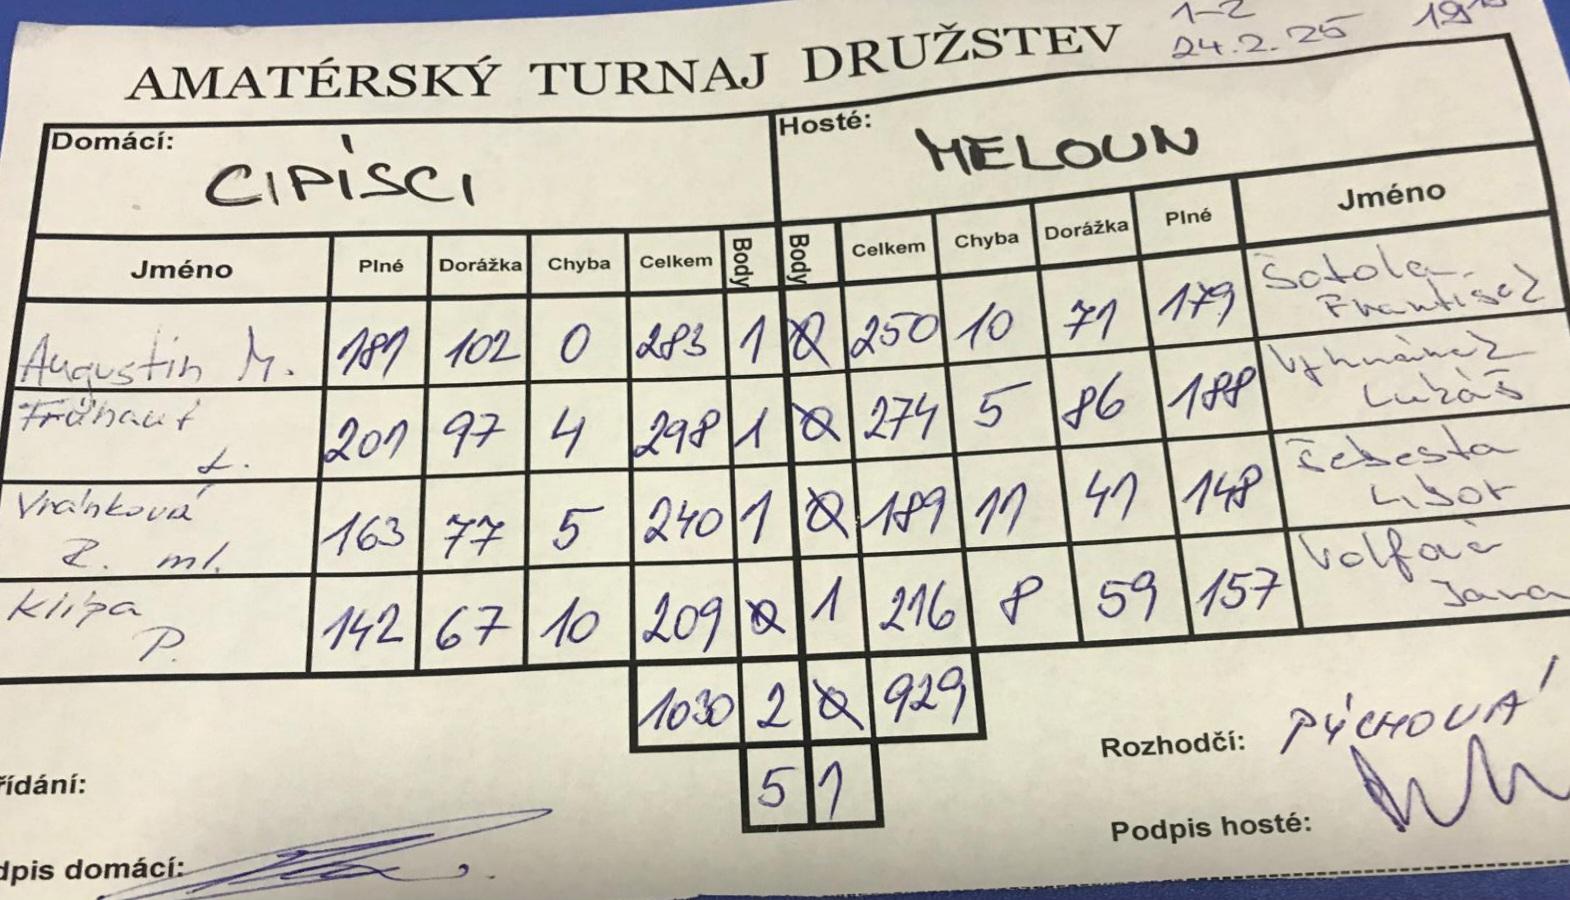 1-2
AMATÉRSKÝ TURNAJ DRUŽSTEV 24.2.25
Domácí: Hosté:
CIPÍSCI MELOUN
Jméno Plné Dorážka Chyba Celkem Body Body Celkem Chyba Dorážka Plné Jméno
Augustin M. 181 102 0 283 1 0 250 10 71 179 Šotola František
Frühauf L. 201 97 4 298 1 0 274 5 86 188 Vyhnánek Lukáš
Vraňková Z. ml. 163 77 5 240 1 0 189 11 41 148 Šebesta Libor
P. 142 67 10 209 0 1 216 8 59 157 Jana
1030 2 0 929
5 1
Rozhodčí: PÝCHOVÁ
řídání:
Podpis hosté:
dpis domácí: